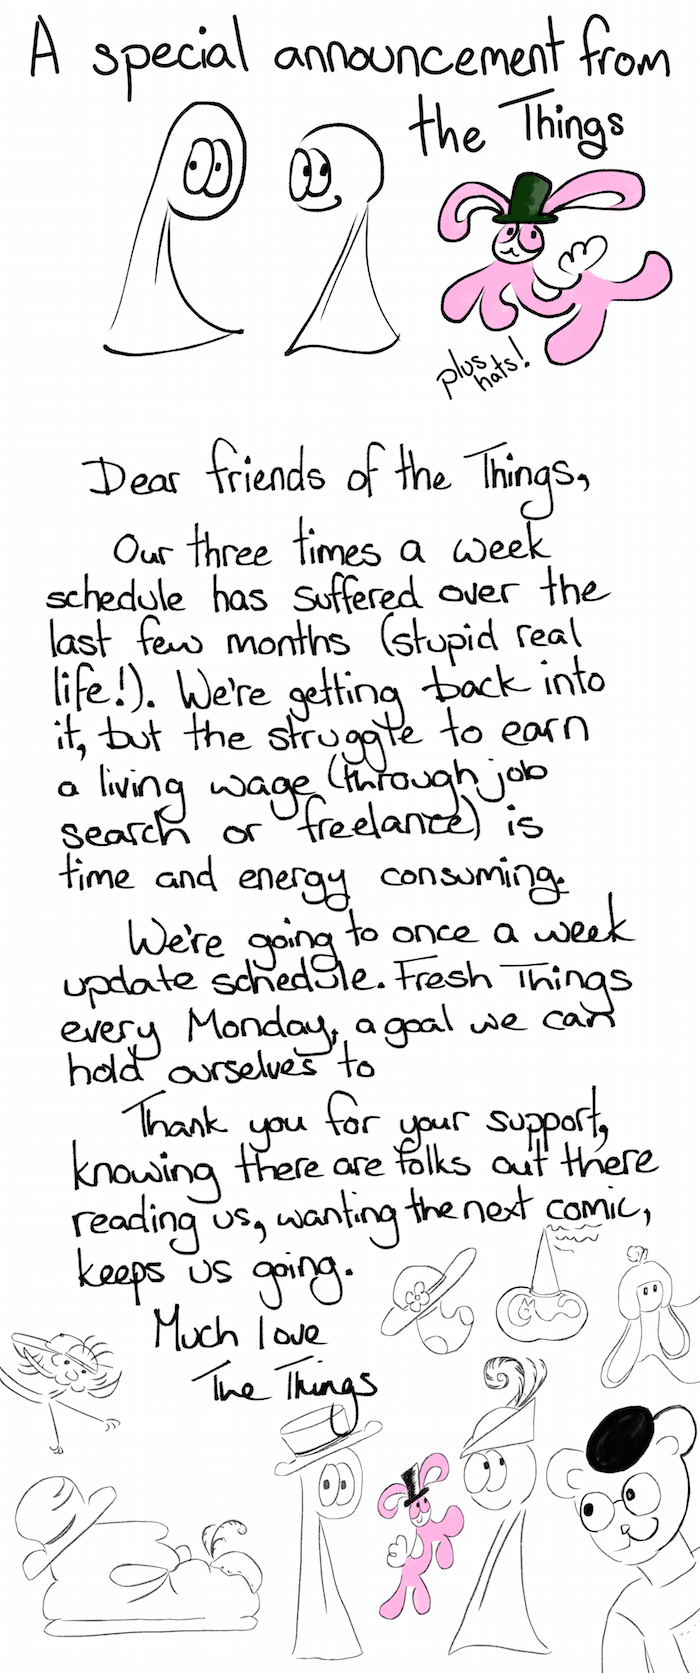 A special announcement from
the Things
plus
hats!
Dear friends of the Things,
Our three times a week
schedule has suffered over the
last few months (stupid real
life!). We're getting back into
it, but the struggle to earn
a living wage (through job
search or freelance) is
time and energy consuming.
We're going to once a week
update schedule. Fresh Things
every Monday, a goal we can
hold ourselves to
Thank you for your support,
knowing there are folks out there
reading us, wanting the next comic,
keeps us going.
Much love
The Things